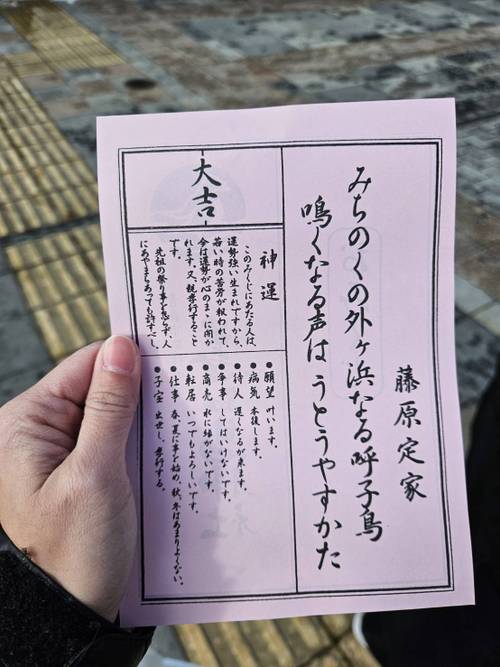 藤原定家
みちのくの外ヶ浜なる呼子鳥
鳴くなる声は うとうやすかた
大吉
神運
このみくじにあたる人は、
運勢強い生まれですから、
若い時の苦労が報われて、
今は運勢が心のまゝに開か
れます。又、親孝行すること
です。
先祖の祭り事を怠らず、人
にあやまちあっても許すべし。
●願望 叶います。
●病気 本復します。
●待人 遅くなるが来ます。
●争事 してはいけないです。
●商売 水に縁がないです。
●転居 いつでもよろしいです。
●仕事 春、夏に事を始め、秋、冬はあまりよくない。
●子宝 出世し、孝行する。